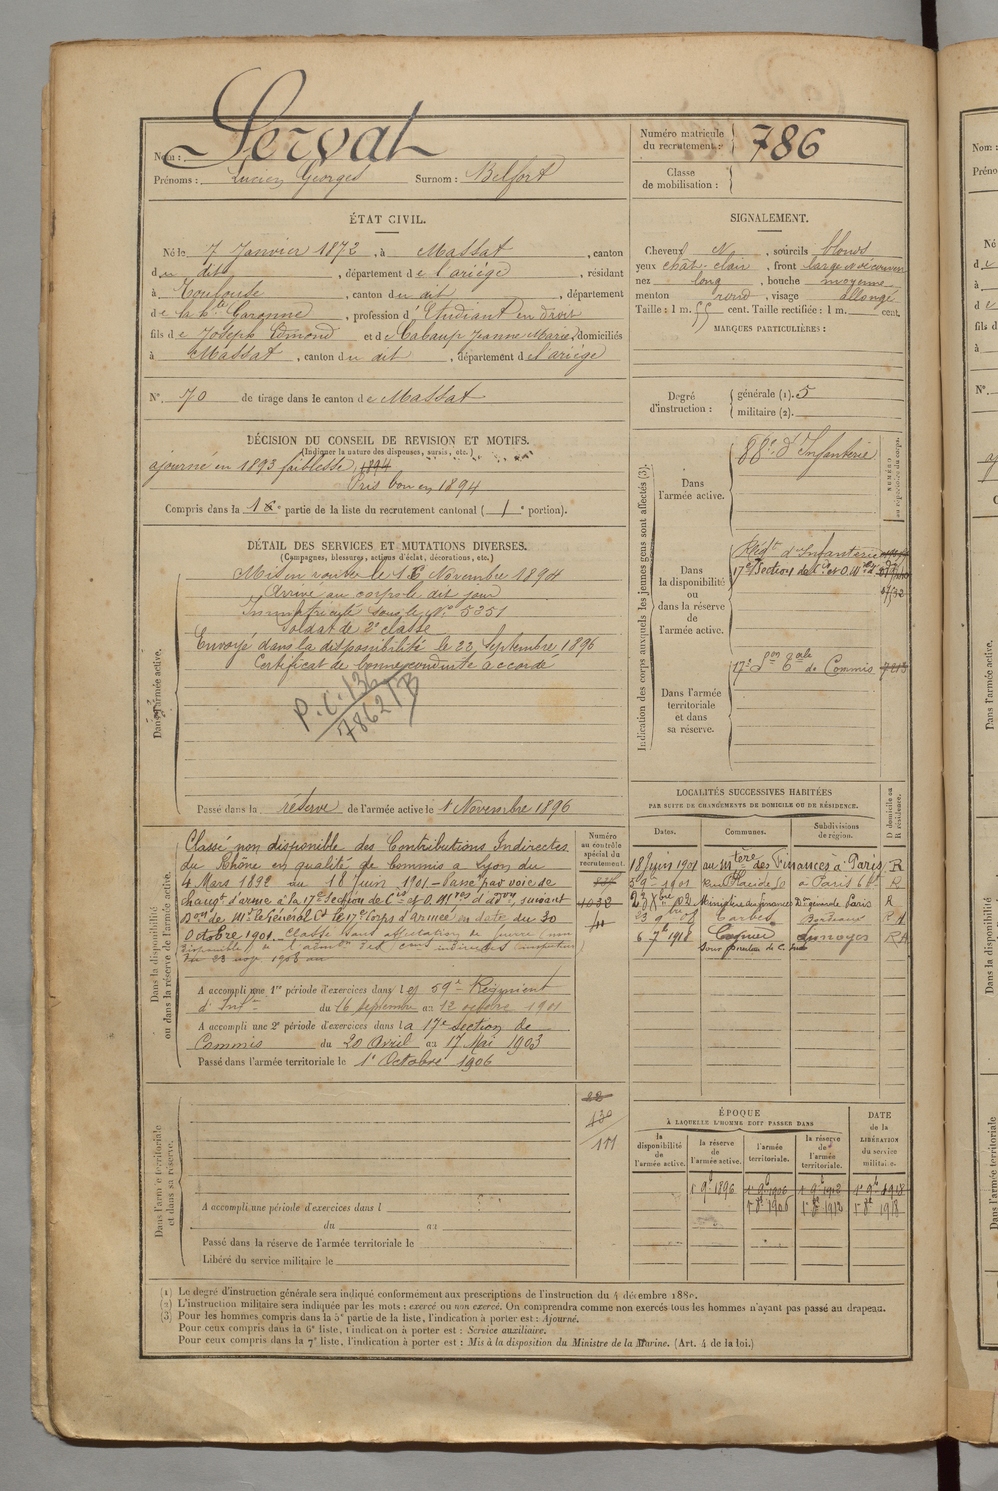 Nom : Servat
Prénoms : Lucien Georges Surnom : Belfort
Numéro matricule du recrutement : 786
Classe de mobilisation :
ÉTAT CIVIL.
Né le 7 Janvier 1872, à Massat, canton
du dit, département de l'ariège, résidant
à Toulouse, canton du dit, département
de la hte Garonne, profession d'Etudiant en droit
fils de Joseph Edmond et de Cabaup Jeanne Marie, domiciliés
à Massat, canton du dit, département de l'ariège
N° 70 de tirage dans le canton de Massat
SIGNALEMENT.
Cheveux N, sourcils blonds
yeux chât-clair, front large et découvert
nez long, bouche moyenne
menton rond, visage allongé
Taille : 1 m. 55 cent. Taille rectifiée : 1 m. cent.
MARQUES PARTICULIÈRES :
Degré d'instruction : générale (1). 5
militaire (2).
DÉCISION DU CONSEIL DE REVISION ET MOTIFS.
(Indiquer la nature des dispenses, sursis, etc.)
ajourné en 1893 faiblesse, 1894
Pris bon en 1894
Compris dans la 1e partie de la liste du recrutement cantonal (1e portion).
DÉTAIL DES SERVICES ET MUTATIONS DIVERSES.
(Campagnes, blessures, actions d'éclat, décorations, etc.)
Dans l'armée active.
Mis en route le 16 Novembre 1894
Arrivé au corps le dit jour
Immatriculé sous le N° 5351
Soldat de 2e classe
Envoyé dans la disponibilité le 22 Septembre 1896
Certificat de bonne conduite accordé
P.C. 136
7862/B
Passé dans la réserve de l'armée active le 1 Novembre 1896
Indication des corps auxquels les jeunes gens sont affectés (3).
NUMÉRO au répertoire du corps.
Dans l'armée active.
88e d'Infanterie
Dans la disponibilité ou dans la réserve de l'armée active.
Régt d'Infanterie
17e Section de Cis et O. Mres d'
Dans l'armée territoriale et dans sa réserve.
17e Son Eale de Commis 7213
Dans la disponibilité ou dans la réserve de l'armée active.
Numéro au contrôle spécial du recrutement.
Classé non disponible des Contributions Indirectes
du Rhône en qualité de Commis à Lyon du
4 Mars 1899 au 18 Juin 1901 - Passé par voie de
changt d'arme à la 17e Section de Cis et O. Mres d'admon, suivant
Don de Mr le Général Ct le 17e Corps d'Armée en date du 30
Octobre 1901. Classé sans affectation
1038
A accompli une 1re période d'exercices dans le 59e Régiment
d'Inf. du 16 septembre au 12 octobre 1901
A accompli une 2e période d'exercices dans la 17e section de
Commis du 20 Avril au 17 Mai 1903
Passé dans l'armée territoriale le 1er Octobre 1906
LOCALITÉS SUCCESSIVES HABITÉES
PAR SUITE DE CHANGEMENTS DE DOMICILE OU DE RÉSIDENCE.
Dates. Communes. Subdivisions de région. D domicile ou R résidence.
18 Juin 1901 au mtère des Finances à Paris R
Paris 6e R
Ministère des finances Paris R
Tarbes Bordeaux R
6 7e 1918
Dans l'armée territoriale et dans sa réserve.
111
A accompli une période d'exercices dans l
du au
Passé dans la réserve de l'armée territoriale le
Libéré du service militaire le
ÉPOQUE
À LAQUELLE L'HOMME DOIT PASSER DANS
la disponibilité de l'armée active. la réserve de l'armée active. l'armée territoriale. la réserve de l'armée territoriale. DATE de la LIBÉRATION du service militaire.
1er 9e 1896 1er 9e 1906 1er 9e 1912 1er 9e 1918
1er 8e 1906 1er 8e 1912 1er 8e 1918
(1) Le degré d'instruction générale sera indiqué conformément aux prescriptions de l'instruction du 4 décembre 1889.
(2) L'instruction militaire sera indiquée par les mots : exercé ou non exercé. On comprendra comme non exercés tous les hommes n'ayant pas passé au drapeau.
(3) Pour les hommes compris dans la 5e partie de la liste, l'indication à porter est : Ajourné.
Pour ceux compris dans la 6e liste, l'indication à porter est : Service auxiliaire.
Pour ceux compris dans la 7e liste, l'indication à porter est : Mis à la disposition du Ministre de la Marine. (Art. 4 de la loi.)